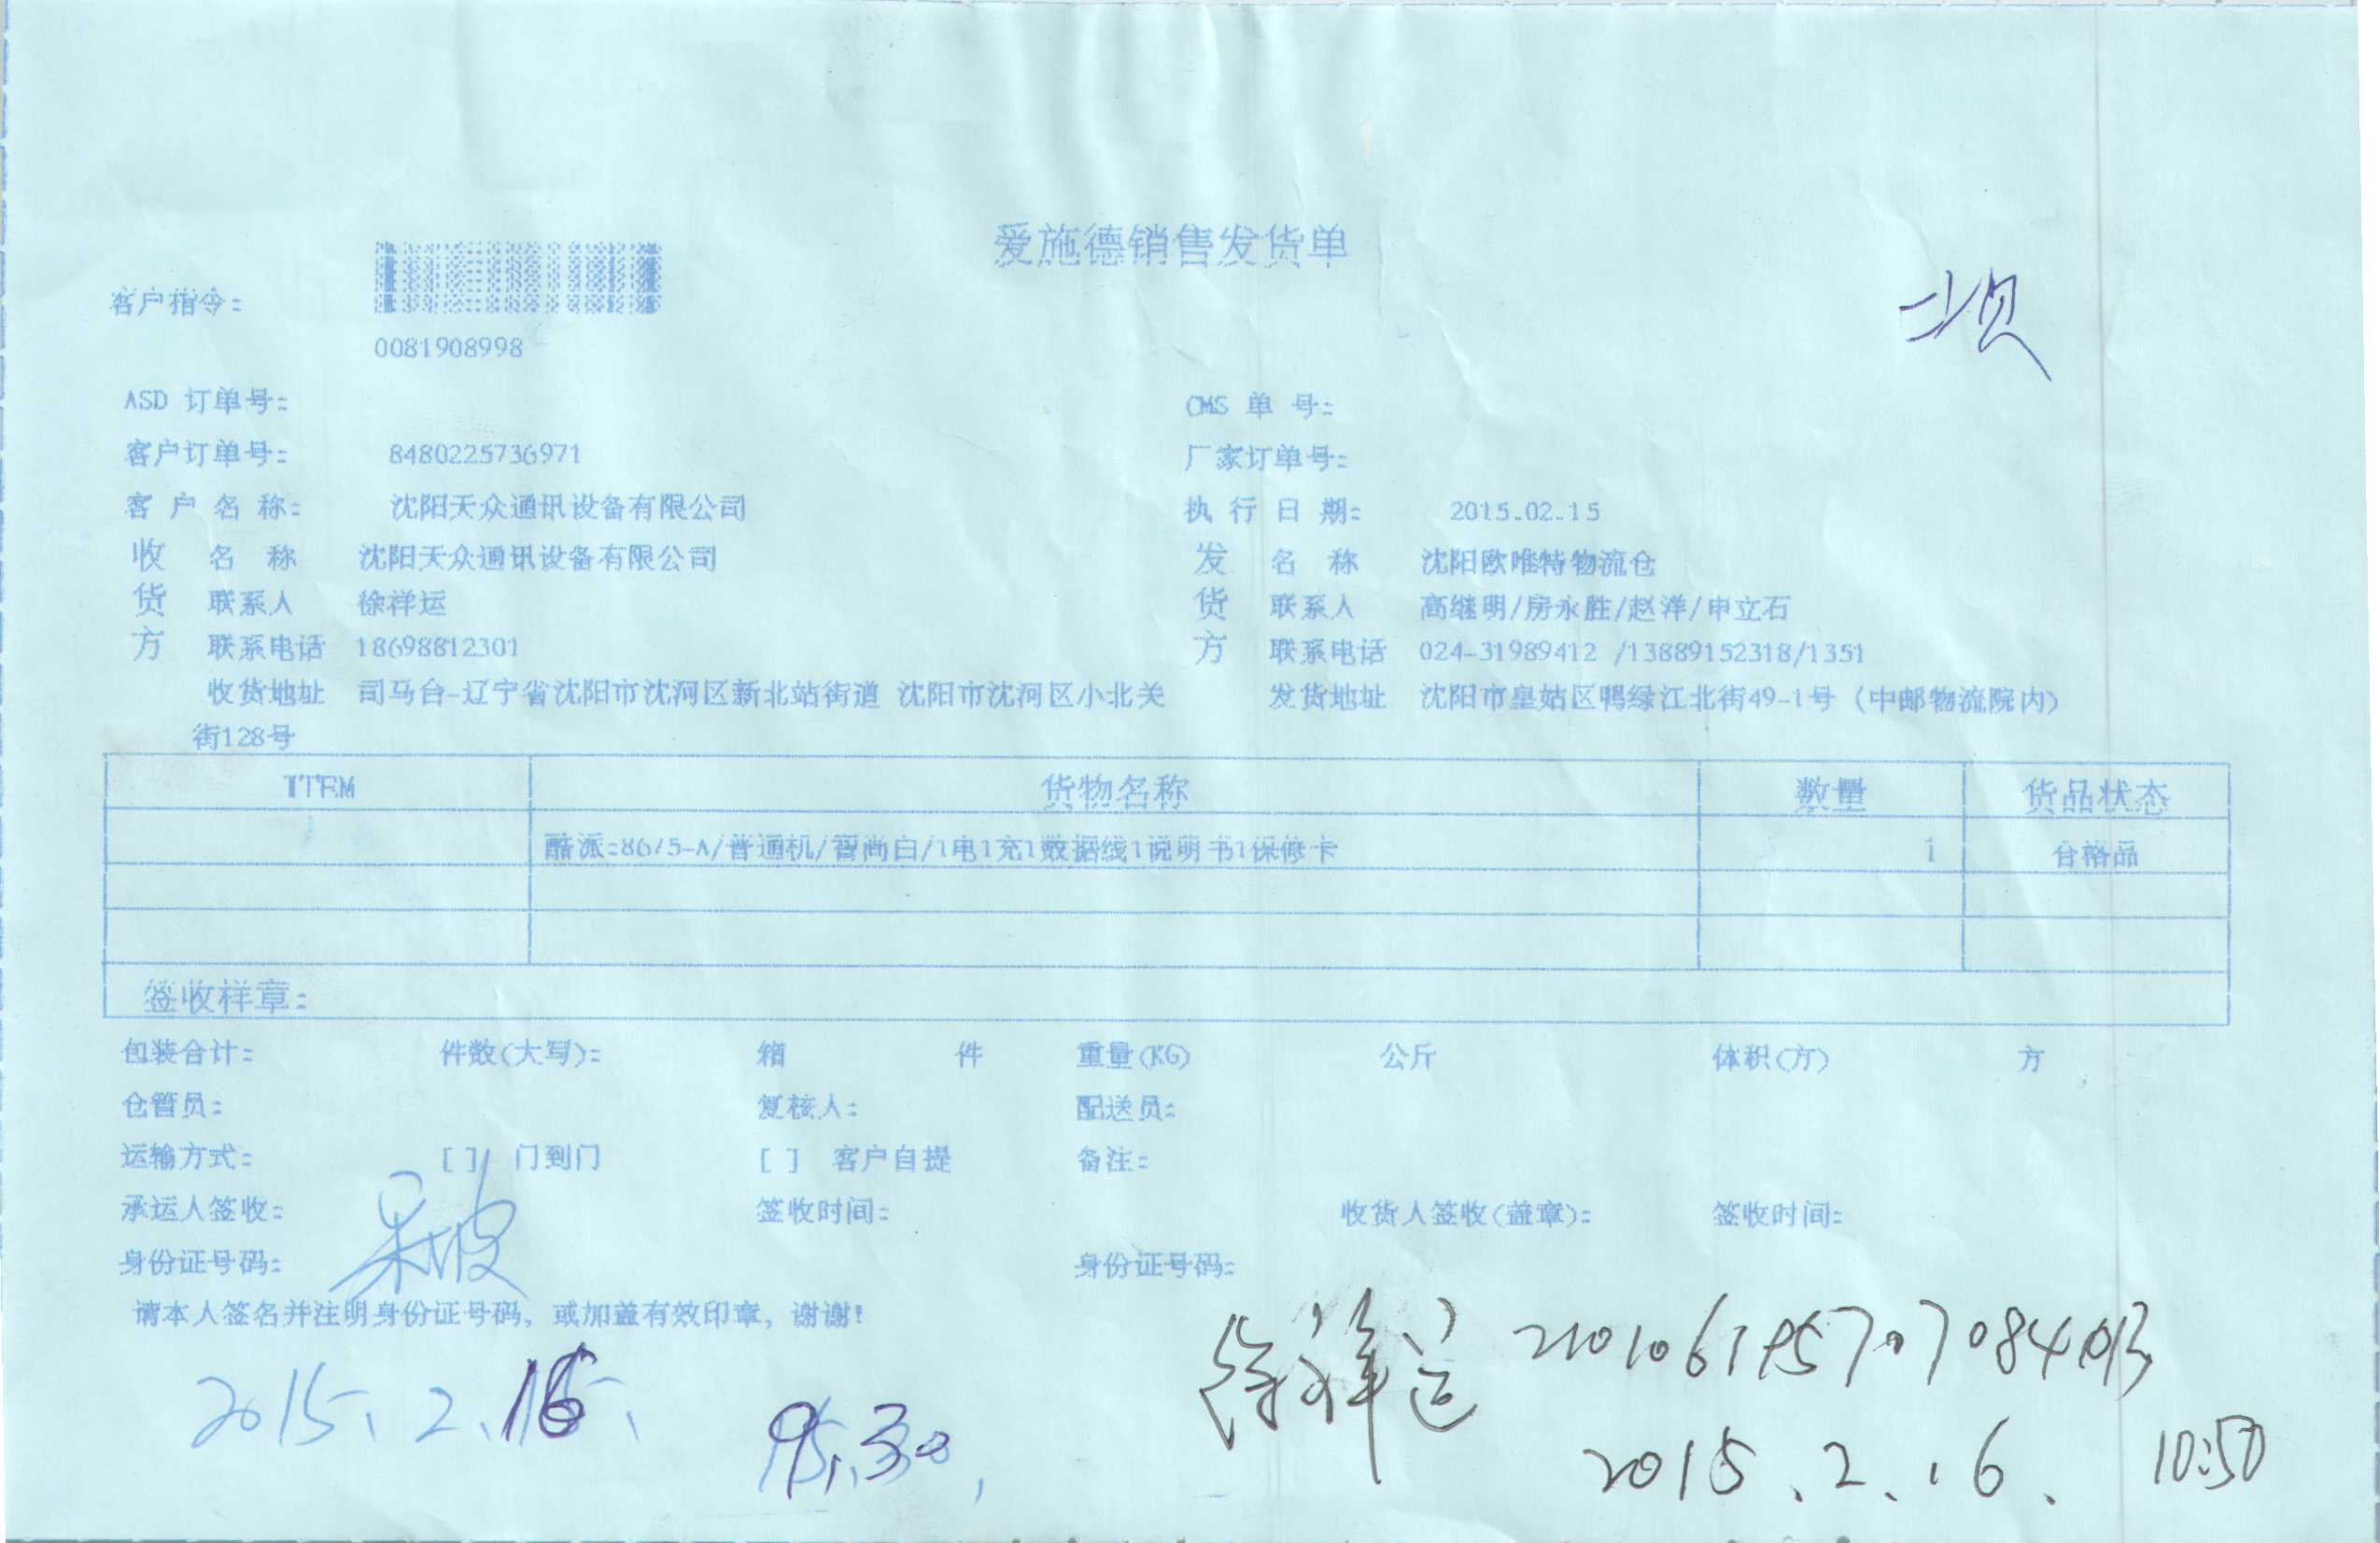 爱施德销售发货单
客户指令：
0081908998
ASD 订单号： CMS 单 号：
客户订单号： 8480225736971 厂家订单号：
客 户 名 称： 沈阳天众通讯设备有限公司 执 行 日 期： 2015.02.15
收 名 称 沈阳天众通讯设备有限公司 发 名 称 沈阳欧唯特物流仓
货 联系人 徐祥运 货 联系人 高继明/房永胜/赵洋/申立石
方 联系电话 18698812301 方 联系电话 024-31989412 /13889152318/1351
收货地址 司马台-辽宁省沈阳市沈河区新北站街道 沈阳市沈河区小北关 发货地址 沈阳市皇姑区鸭绿江北街49-1号（中邮物流院内）
街128号
ITEM 货物名称 数量 货品状态
酷派:8675-A/普通机/智尚白/1电1充1数据线1说明书1保修卡 1 合格品
签收样章：
包装合计： 件数(大写)： 箱 件 重量(KG) 公斤 体积(方) 方
仓管员： 复核人： 配送员：
运输方式： [ ] 门到门 [ ] 客户自提 备注：
承运人签收： 签收时间： 收货人签收(盖章)： 签收时间：
身份证号码： 身份证号码：
请本人签名并注明身份证号码，或加盖有效印章，谢谢！
徐祥运
2015.2.16. 2015.2.16. 10:50